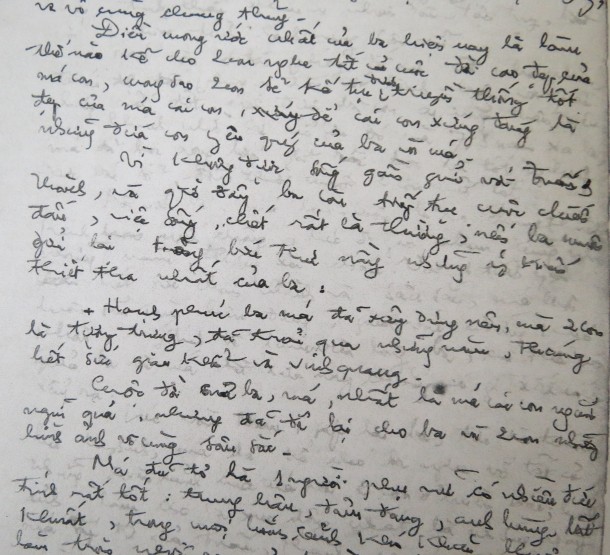 và vô cùng chung thủy -
Điều mong ước nhất của ba hiện nay là làm
thế nào kể cho 2 con nghe tất cả cuộc đời cao đẹp của
má con, mong sao 2 con sẽ kế tục truyền thống tốt
đẹp của má các con, để các con xứng đáng là
những đứa con yêu quý của ba và má.
Vì không được sống gần gũi với
, và giờ đây ba còn tiếp tục cuộc chiến
đấu, việc sống, chết rất là thường, nên ba muốn
gửi lại trong bức thư này những ý
thiết tha nhất của ba :
+ Hạnh phúc ba má đã xây dựng nên, mà 2 con
là tượng trưng, đã trải qua những năm, tháng
hết sức gian khổ và vinh quang -
Cuộc đời của ba, má, nhất là má các con ngắn
ngủi quá, nhưng đã để lại cho ba và 2 con những
hình ảnh vô cùng sâu sắc -
Má đã tỏ là 1 người phụ nữ có nhiều đức
tính rất tốt : trung hậu, đảm đang, anh hùng bất
khuất, trong mọi hoàn cảnh khó khăn